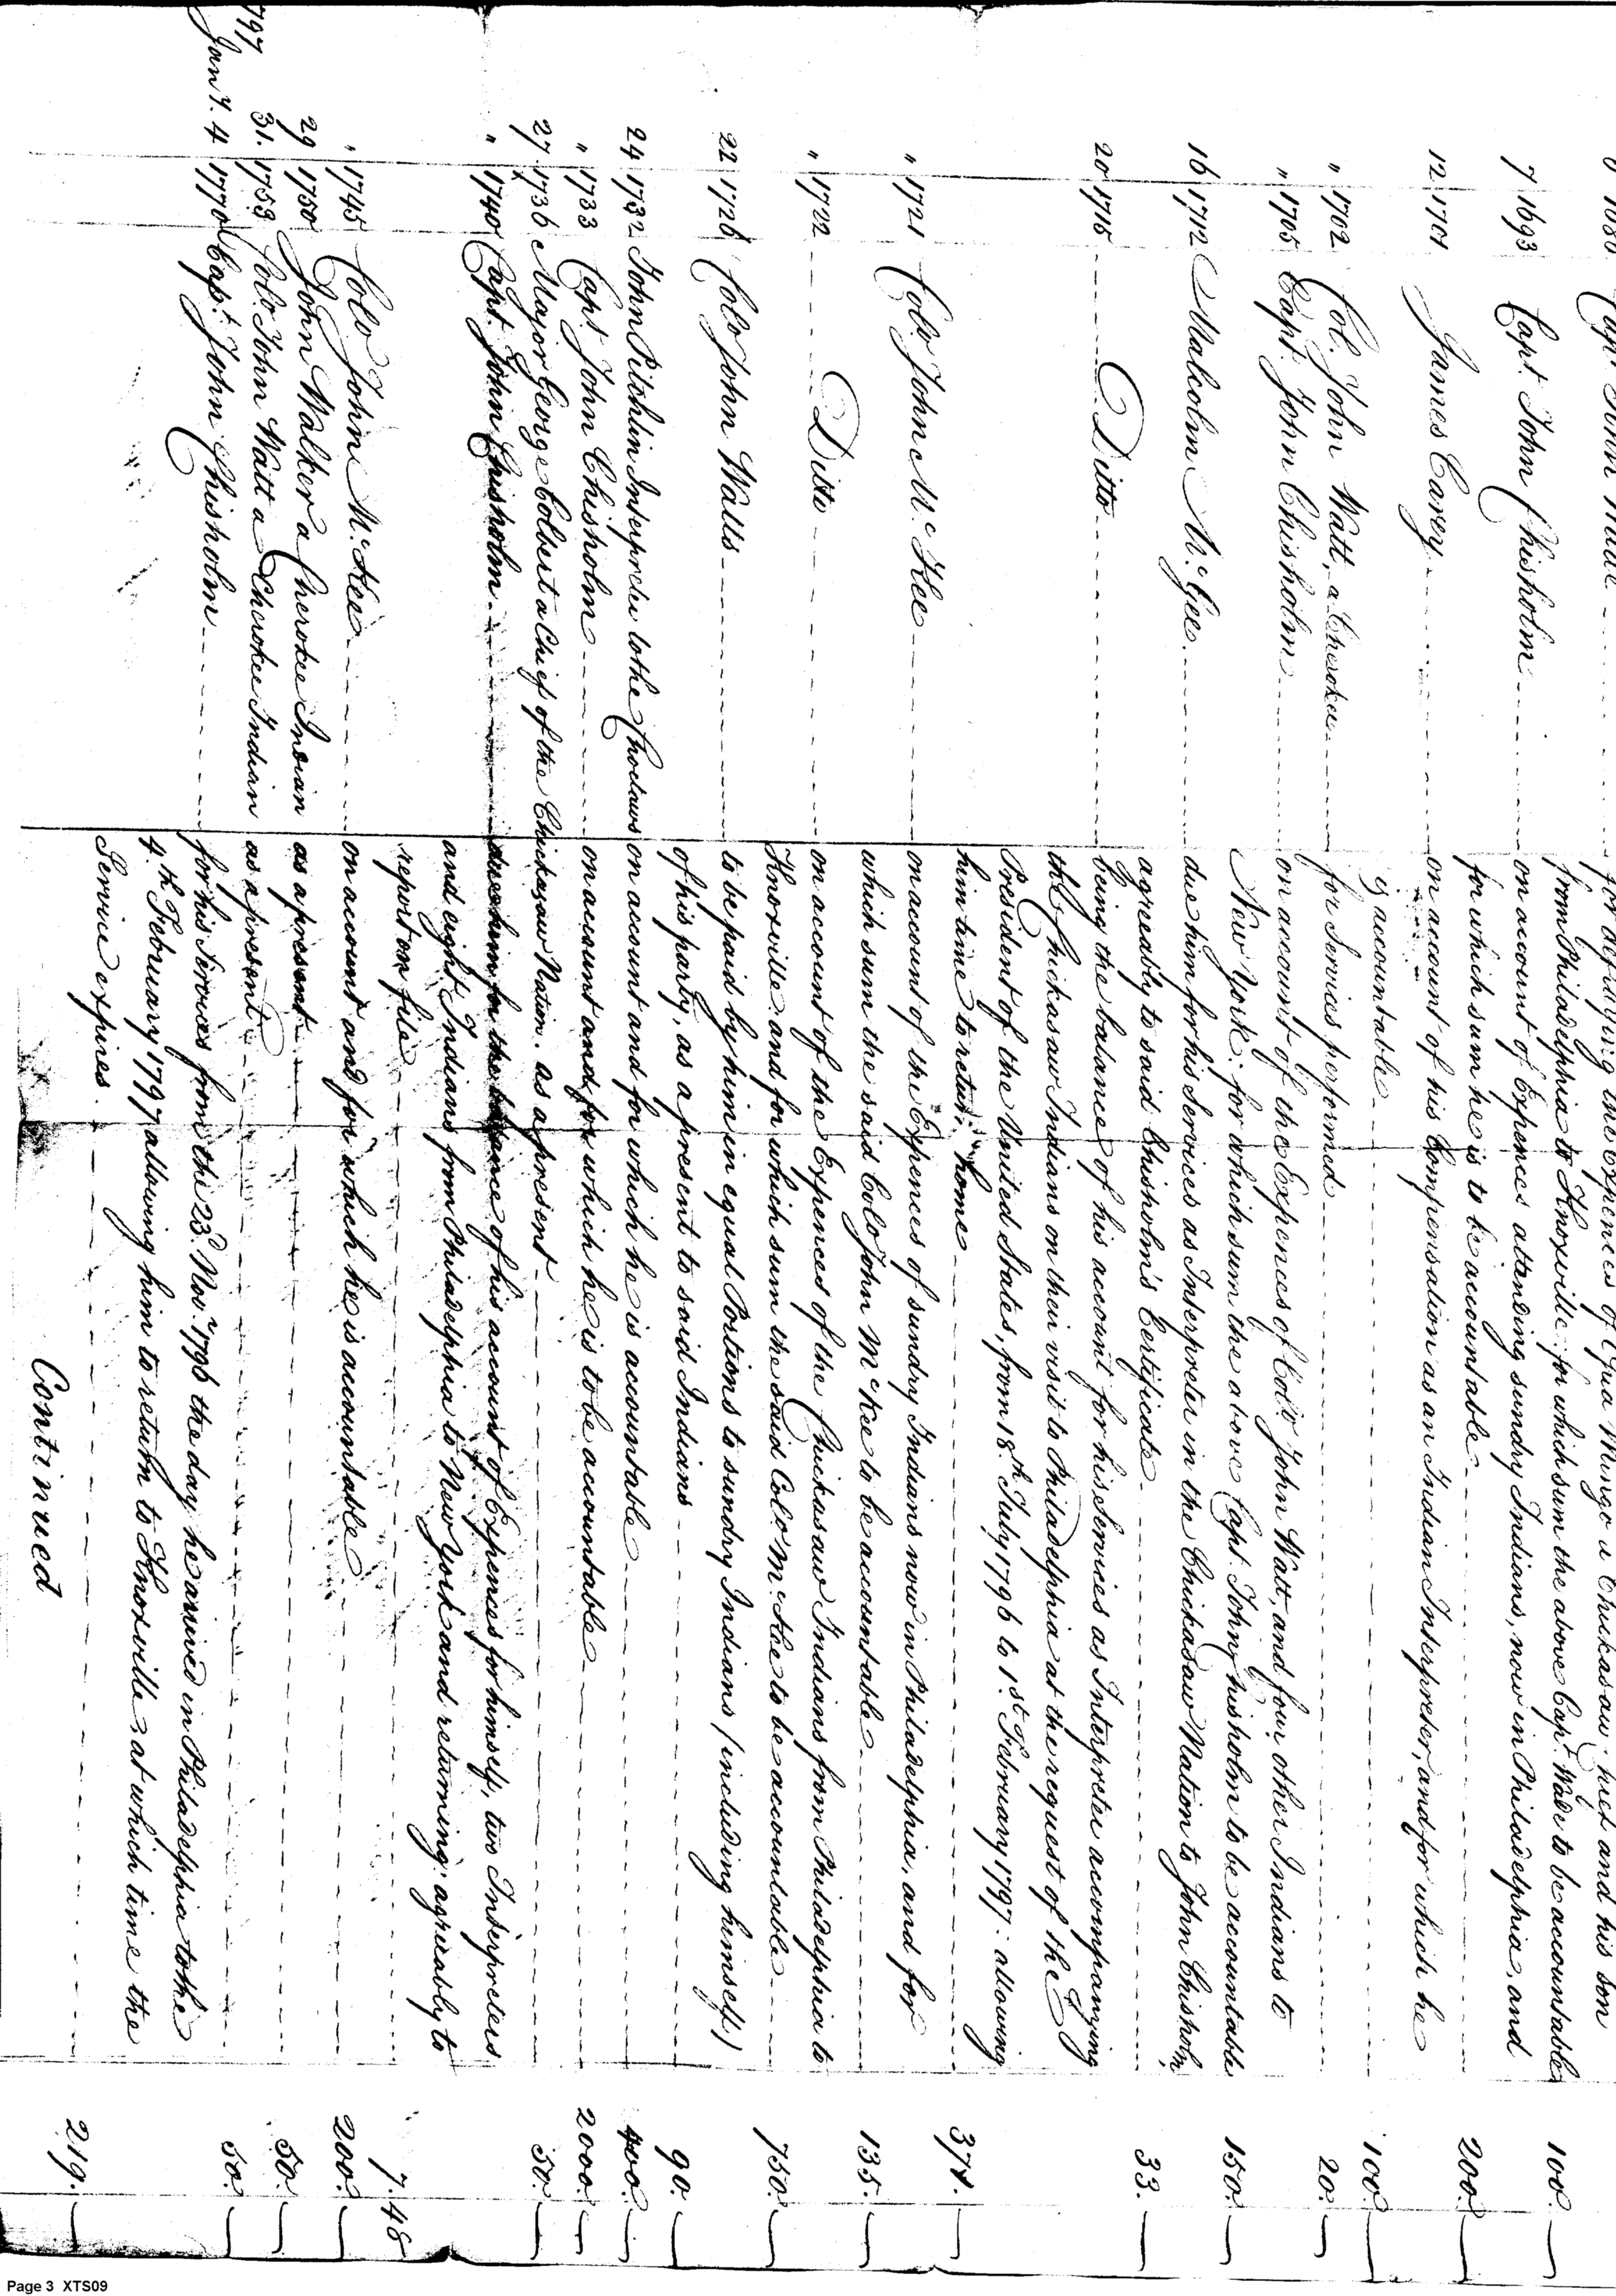 6 1680 Capt. John Wade for defraying the Expences of Ugua Mingo a Chickasaw Chief and his son
from Philadelphia to Knoxville: for which sum the above Capt. Wade to be accountable 100.
7 1693 Capt. John Chisholm on account of Expences attending sundry Indians, now in Philadelphia, and
for which sum he is to be accountable 200.
12 1701 James Carey on account of his Compensation as an Indian Interpreter, and for which he
is accountable 100.
" 1702 Col. John Watt, a Cherokee for Services performd 20.
" 1705 Capt. John Chisholm on account of the Expences of Colo. John Watt, and four other Indians to
New York: for which sum the above Capt. John Chisholm to be accountable 150.
16 1712 Malcolm McGee due him for his Services as Interpreter in the Chickasaw Nation to John Chisholm,
agreeably to said Chisholm's Certificate 33.
20 1716 Ditto being the balance of his account for his Services as Interpreter accompanying
the Chickasaw Indians on their visit to Philadelphia at the request of the
President of the United States, from 18th July 1796 to 1st February 1797: allowing
him time to return home 374.
" 1721 Colo. John McKee on account of the Expences of sundry Indians now in Philadelphia, and for
which sum the said Colo. John McKee to be accountable 135.
" 1722 Ditto on account of the Expences of the Chickasaw Indians from Philadelphia to
Knoxville and for which sum the said Colo. McKee to be accountable 750.
22 1726 Colo. John Watts to be paid by him in equal Portions to sundry Indians (including himself)
of his party, as a present to said Indians 90.
24 1732 John Pitchlin Interpreter to the Choctaws on account and for which he is accountable 400.
" 1733 Capt. John Chisholm on account and for which he is to be accountable 2000.
27. 1736 Major George Colbert a Chief of the Chickasaw Nation. as a present 50.
" 1740 Capt. John Chisholm due him for the balance of his account of Expences for himself, two Interpreters
and eight Indians from Philadelphia to New York and returning: agreeably to
report on file 7.48
" 1745 Colo. John McKee on account and for which he is accountable 200.
29 1750 John Walker a Cherokee Indian as a present 50.
31. 1753 Colo. John Watt a Cherokee Indian as a present 50.
797
Jany. 4 1770 Capt. John Chisholm for his Services from the 23. Nov. 1796 the day he arrived in Philadelphia to the
4th February 1797 allowing him to return to Knoxville, at which time the
Service expires 219.
Continued
Page 3 XTS09